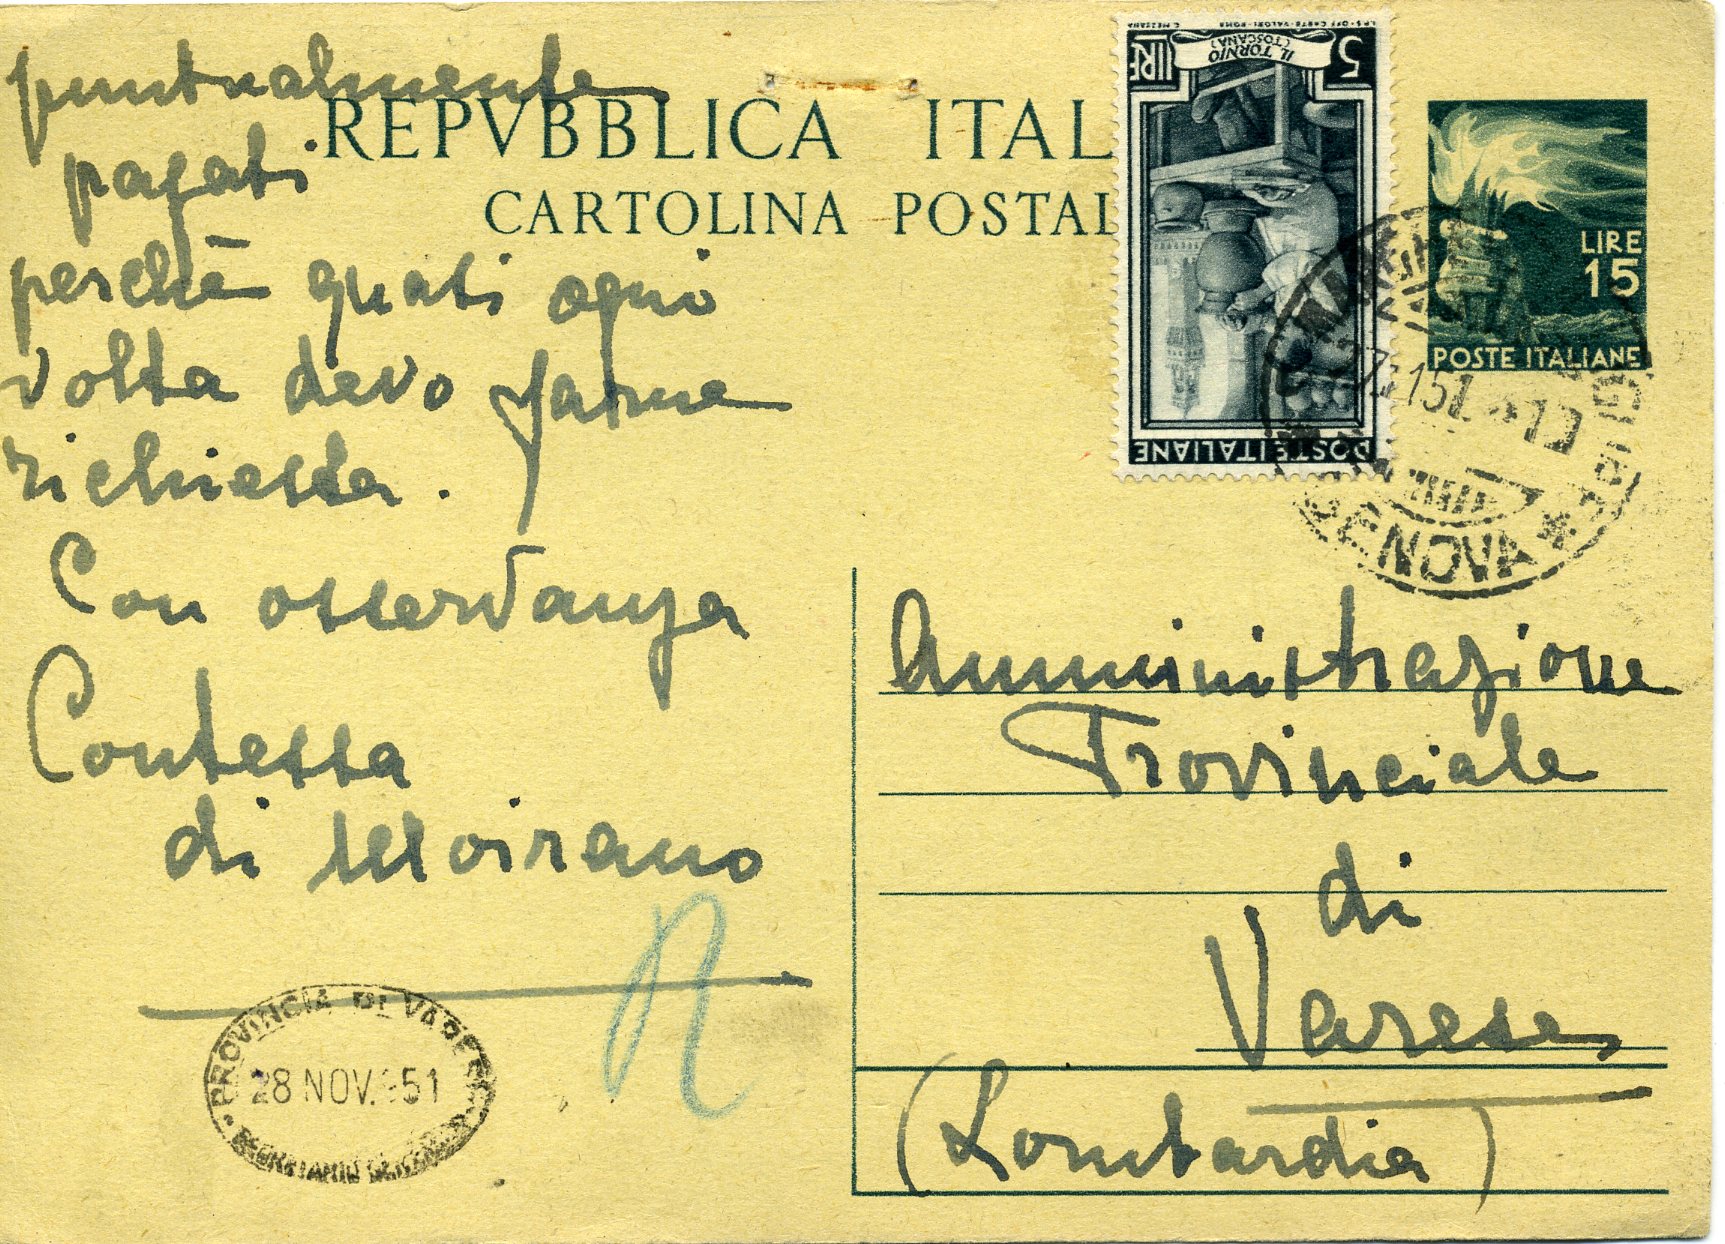 puntualmente
pagati
perchè quasi ogni
volta devo farne
richiesta.
Con osservanza
Contessa
di Moirano
REPVBBLICA ITAL
CARTOLINA POSTAL
5 LIRE
IL TORNIO
(TOSCANA)
I.P.S. - OFF. CARTE-VALORI - ROMA
C. MEZZANA
POSTE ITALIANE
LIRE
15
POSTE ITALIANE
GENOVA
Amministrazione
Provinciale
di
Varese
(Lombardia)
PROVINCIA DI VARESE
28 NOV. 951
SEGRETARIO GENERALE